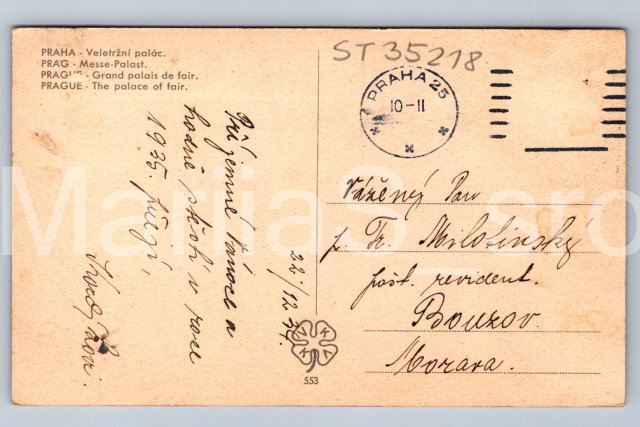 PRAHA - Veletržní palác.
PRAG - Messe-Palast.
PRAGUE - Grand palais de foir.
PRAGUE - The palace of fair.
ST 35218
PRAHA 25
10-II
Příjemné Vánoce a
hodně štěstí v roce
1935. přejí,
22/12 34.
Vážený Pan
p. Fr. Milotinský
pošt. revident.
Bouzov.
Morava.
553